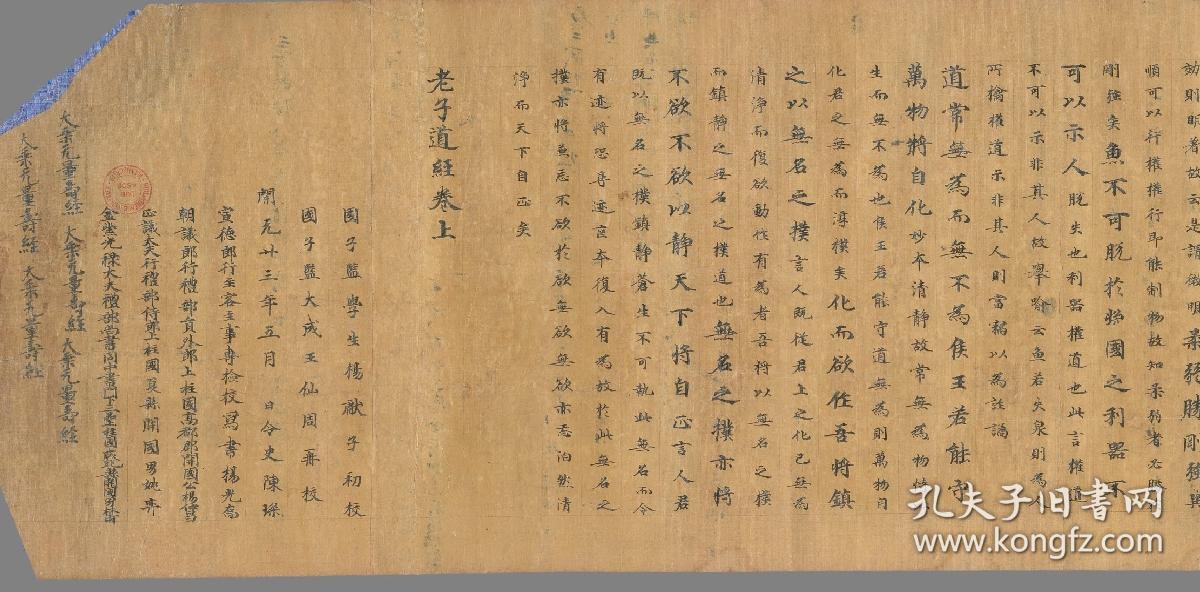 順可以行權權行即能制物故知柔弱者必勝
剛強矣魚不可脫於深國之利器不
可以示人脫失也利器權道也此言權道
不可以示非其人故舉喻云魚若失泉則為人
所擒權道示非其人則當竊以為詐譎
道常無為而無不為侯王若能守
萬物將自化妙本清靜故常無為物恃
生而無不為也侯王若能守道無為則萬物自
化君之無為而淳樸矣化而欲作吾將鎮
之以無名之樸言人既從君上之化已無為
清淨而復欲動作有為者吾將以無名之樸
而鎮靜之無名之樸道也無名之樸亦將
不欲不欲以靜天下將自正言人君
既以無名之樸鎮靜蒼生不可執此無名而令
有迹將恐尋迹喪本復入有為故於此無名之
樸亦將兼忘不欲於欲無欲無欲亦忘泊然清
淨而天下自正矣
老子道經卷上
國子監學生楊獻子初校
國子監大成王仙周再校
開元廿三年五月 日令史陳琛
宣德郎行主客主事專檢校寫書楊光喬
朝議郎行禮部員外郎上柱國高都郡開國公楊仲昌
正議大夫行禮部侍郎上柱國夏縣開國男姚弈
金紫光祿大夫禮部尚書同中書門下三品上柱國成紀縣開國男林甫
大乘无量壽經 大乘无量壽經 大乘无量壽經
大乘无量壽經 大乘无量壽經
孔夫子旧书网
www.kongfz.com